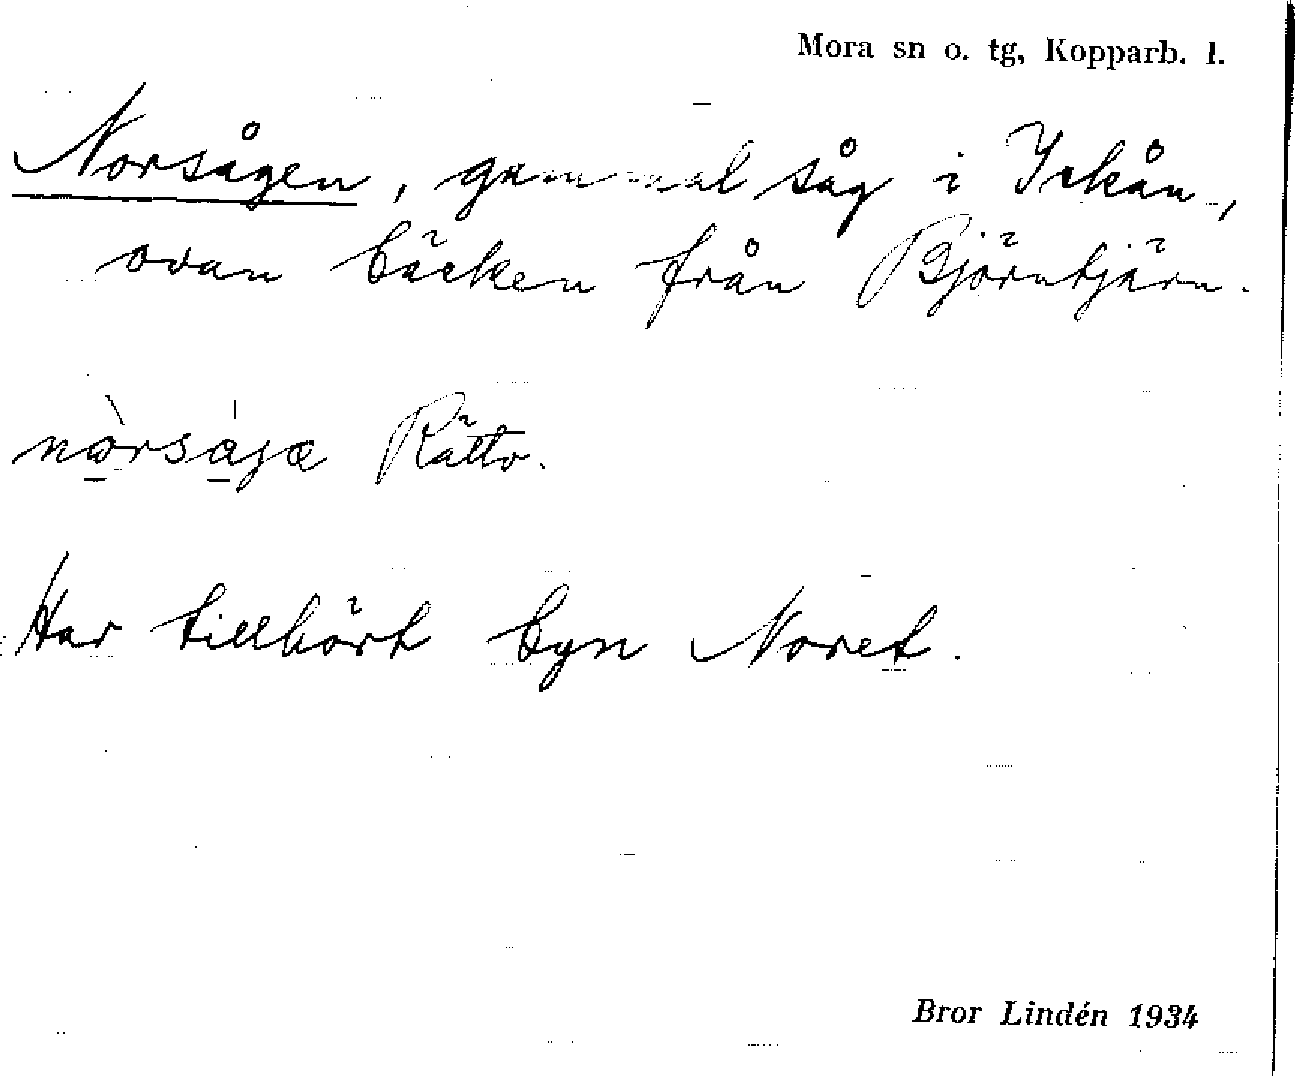 Mora sn o. tg, Kopparb. l.
Norsågen, gammal såg i Ickån,
ovan bäcken från Björntjärn.
Rättv.
Har tillhört byn Noret.
Bror Lindén 1934